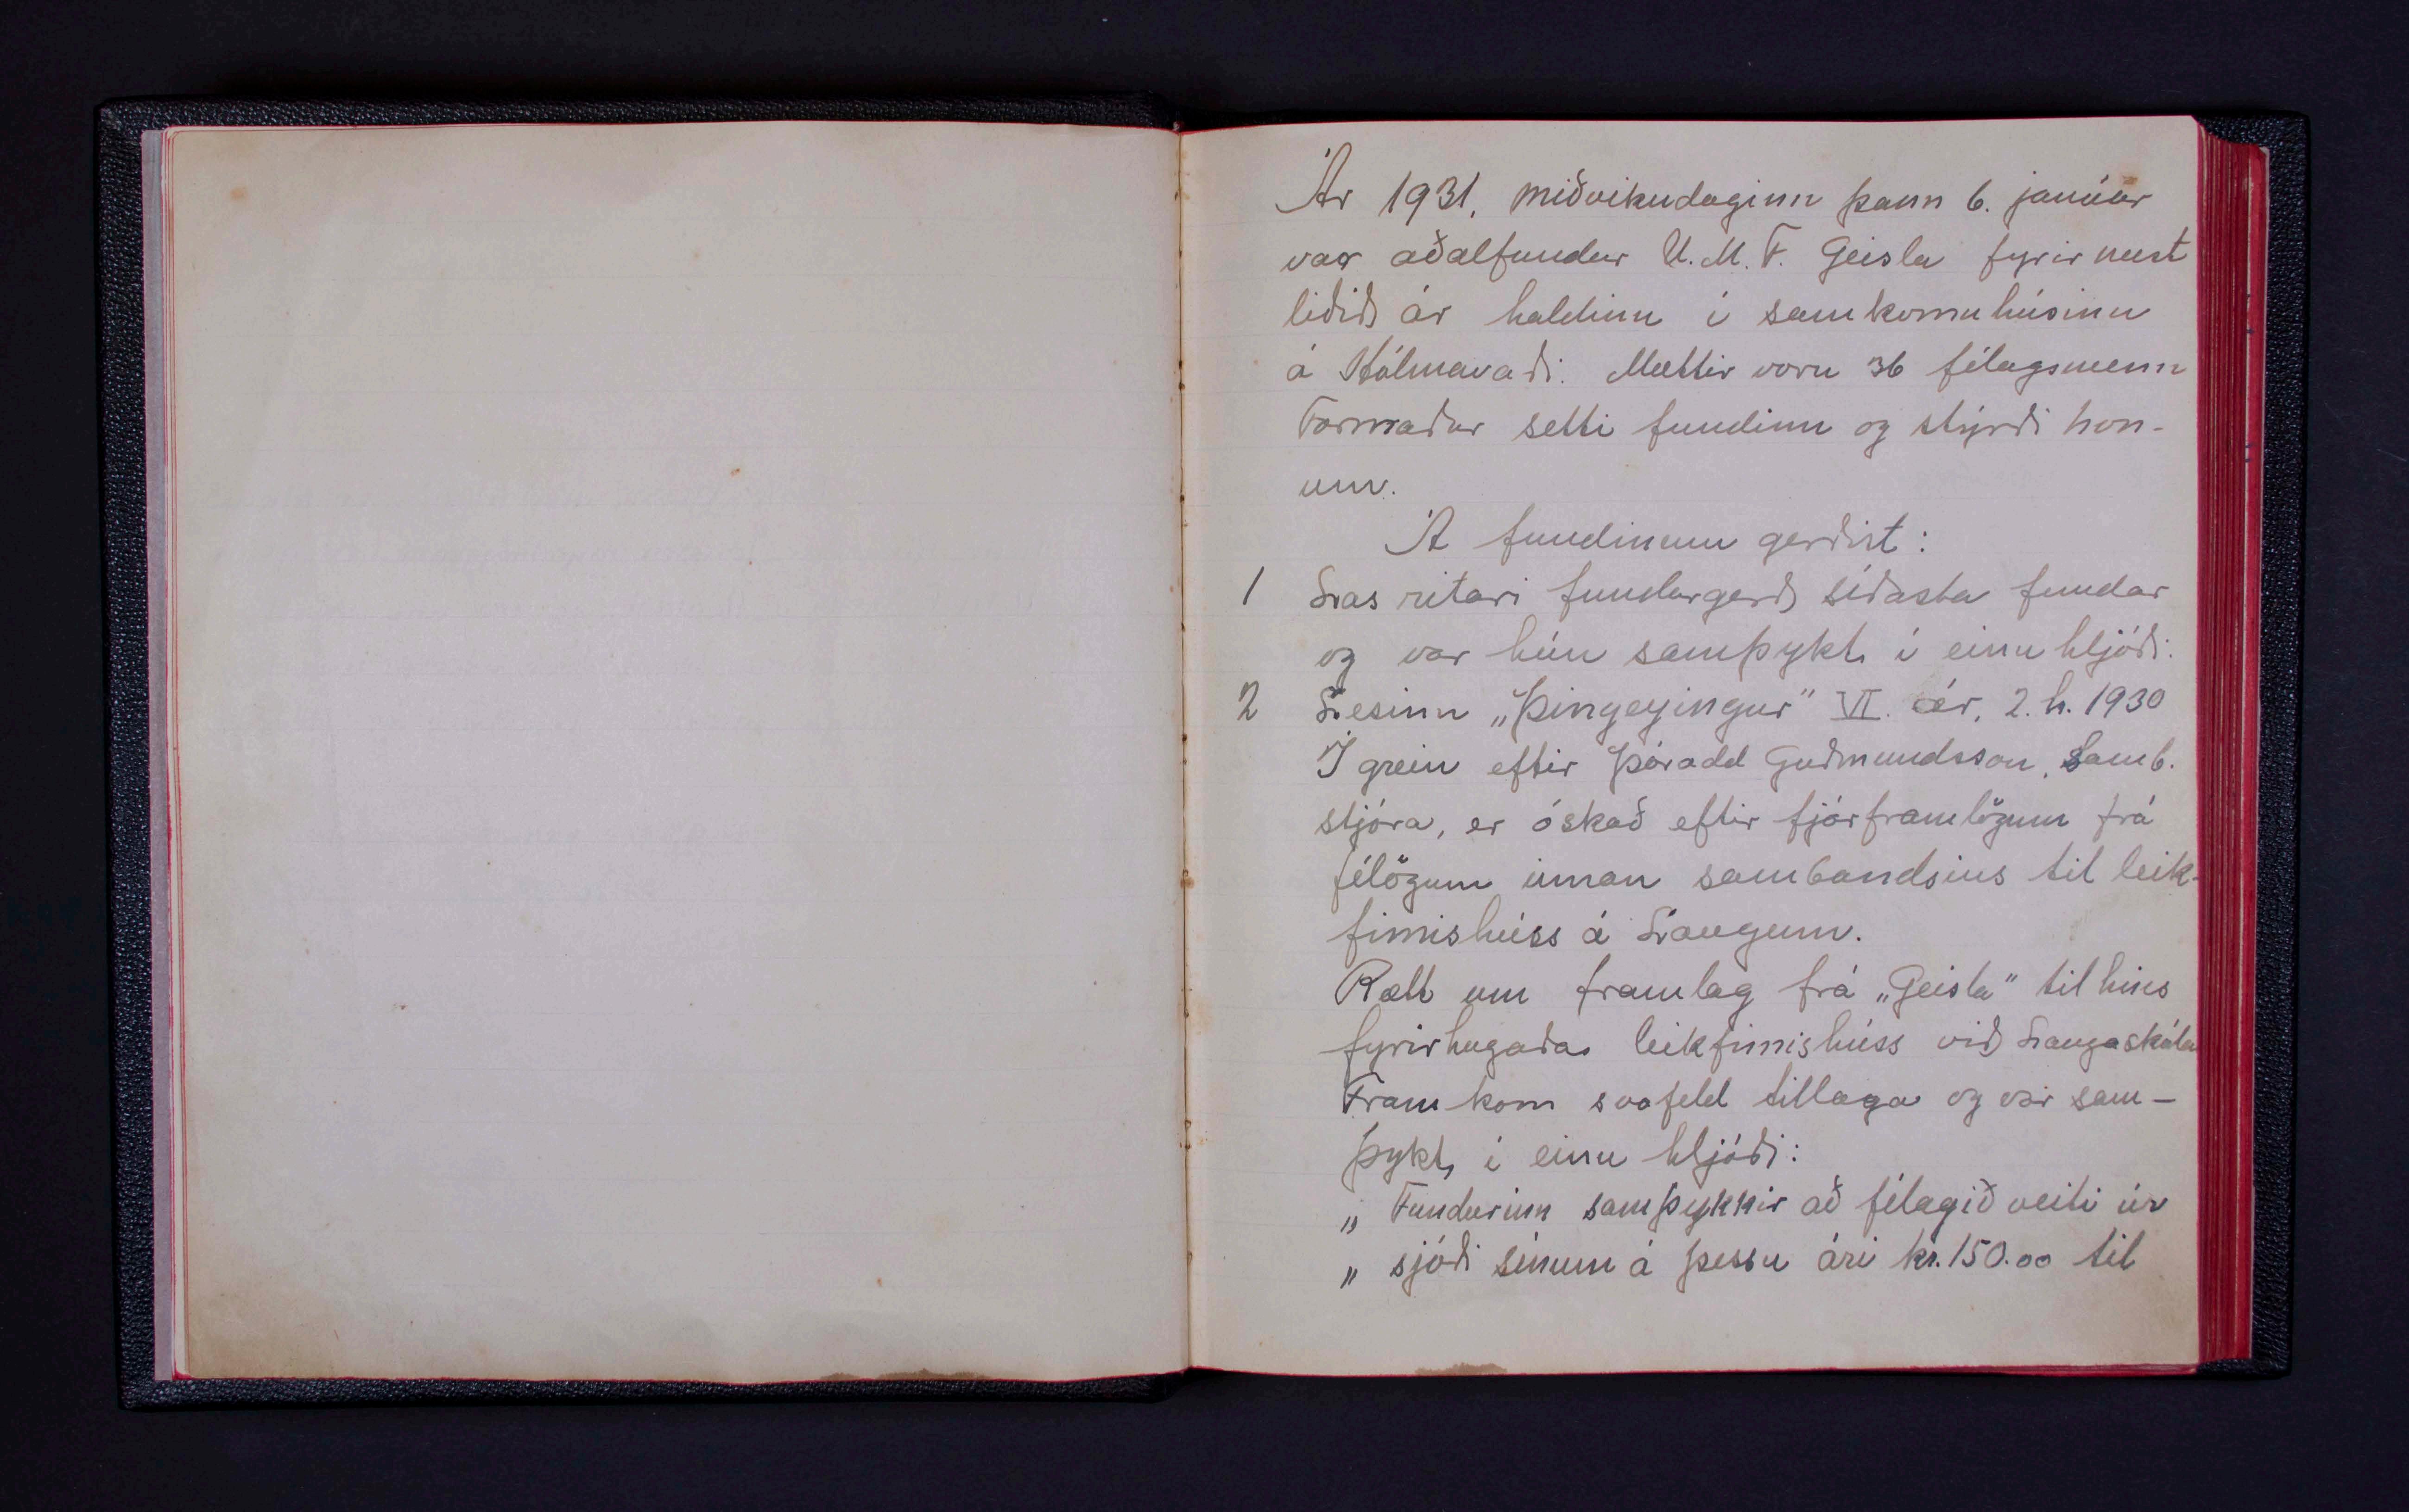 Ár 1931, miðvikudaginn þann 6. janúar
var aðalfundur U.M.F. Geisla fyrir næst
liðið ár haldinn í samkomuhúsinu
á Hólmavaði. Mættir voru 36 félagsmenn
Formaður setti fundinn og stýrði hon-
um.
Á fundinum gerðist:
1 Las ritari fundargerð síðasta fundar
og var hún samþykt í einu hljóði.
2 Lesinn „Þingeyingur" VI. ár, 2. h. 1930
Í grein eftir Þórodd Guðmundsson, Samb.
stjóra, er óskað eftir fjárframlögum frá
félögum innan sambandsins til leik-
fimishúss á Laugum.
Rætt um framlag frá „Geisla" til hins
fyrirhugaða leikfimishúss við Laugaskóla
Fram kom svofeld tillaga og var sam-
þykt í einu hljóði:
„ Fundurinn samþykkir að félagið veiti úr
„ sjóði sínum á þessu ári kr. 150.00 til